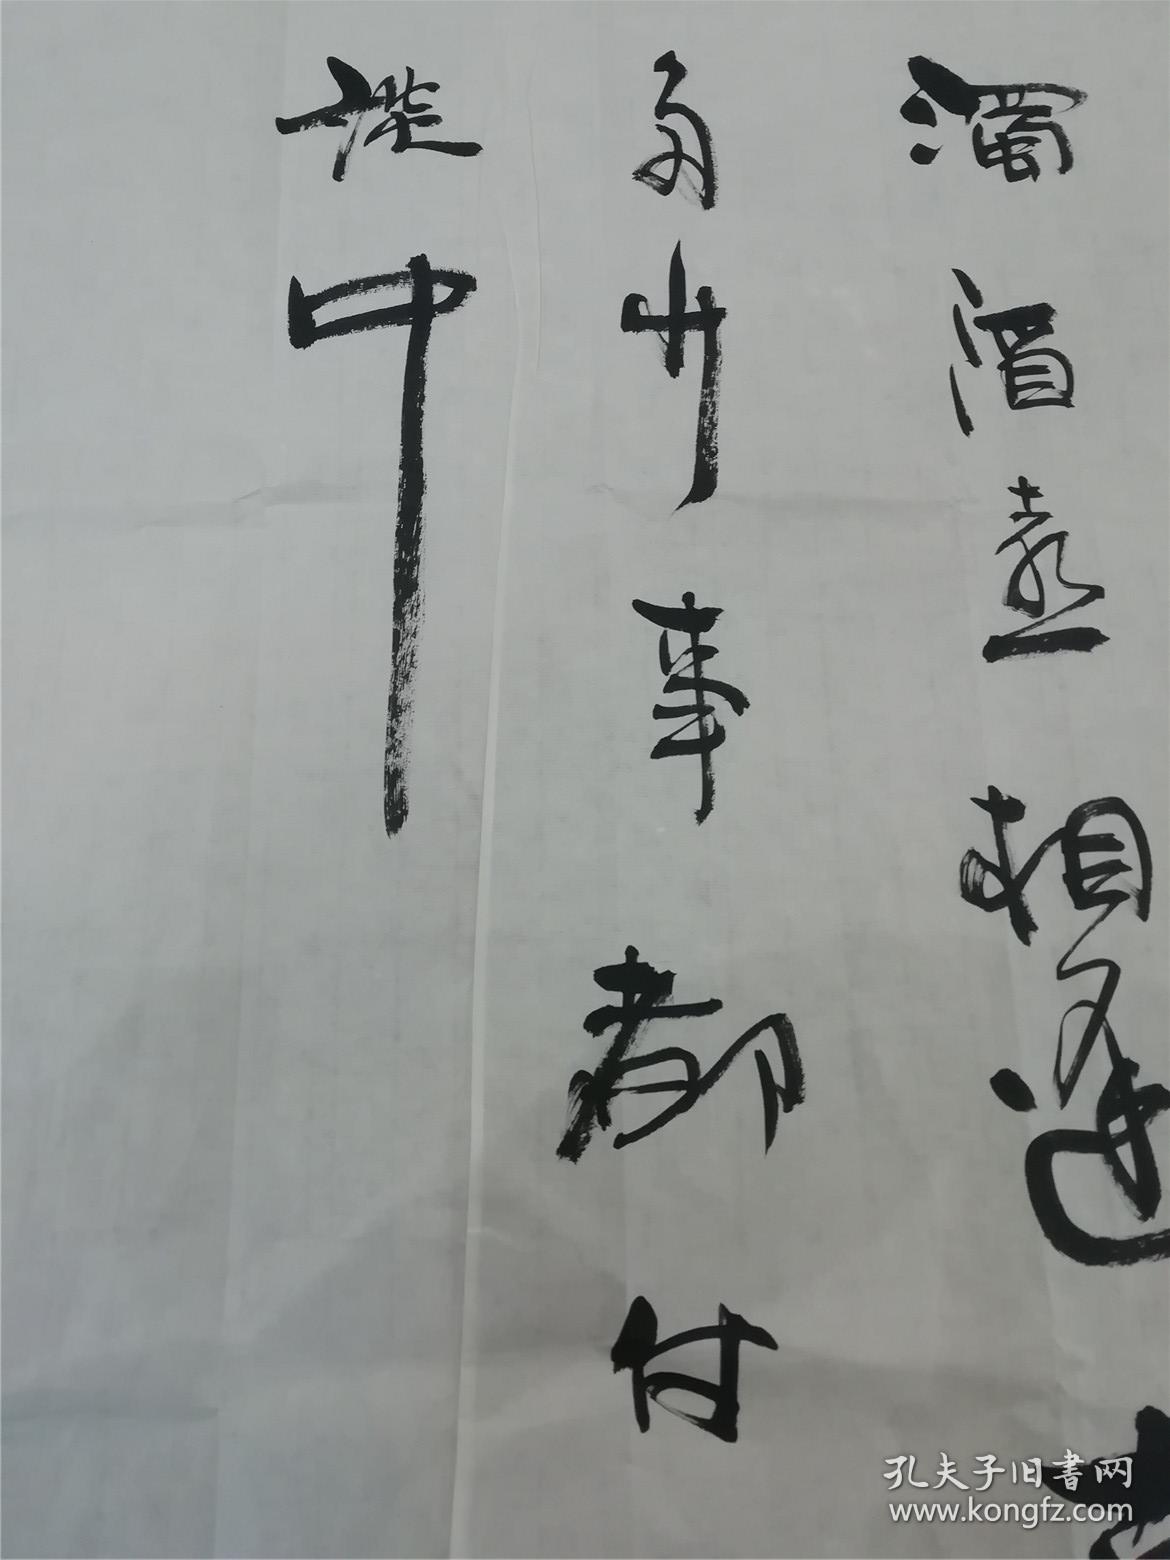 濁酒喜相逢
多少事都付
談中
孔夫子旧書网
www.kongfz.com